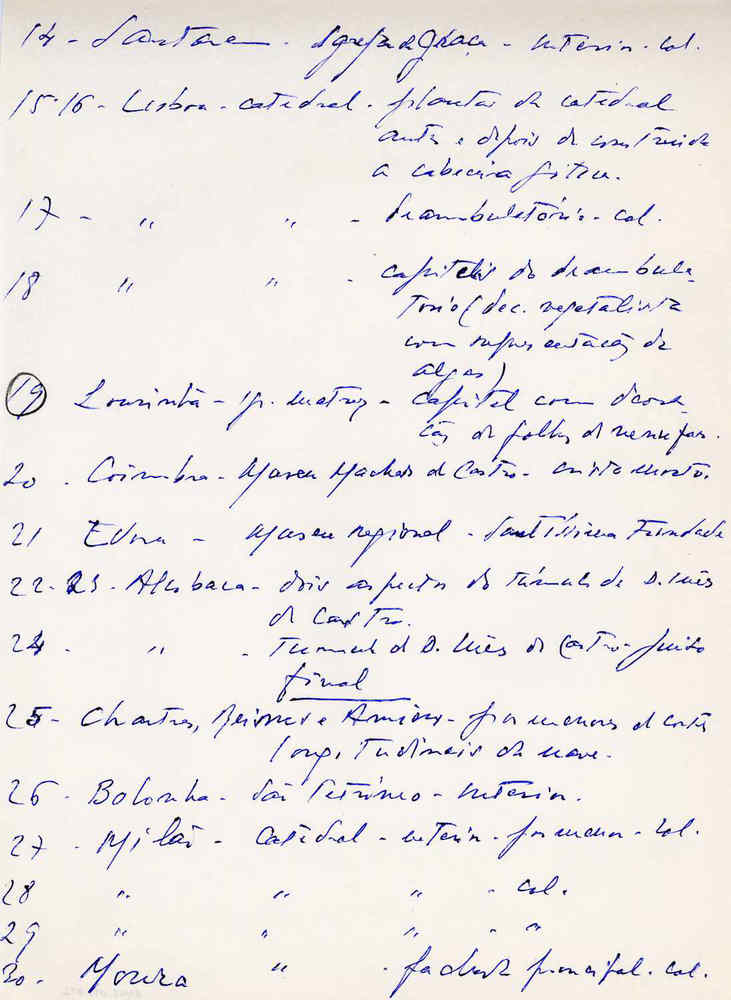 14 - Santarem - Igreja da Graça - interior - col.
15-16 - Lisboa - catedral - plantas da catedral
antes e depois de construida
a cabeceira gótica.
17 - " " - deambulatório - col.
18 " " - capiteis do deambula-
tório (dec. vegetalista
com representação de
algas)
19 Lourinhã - ig. matriz - capitel com decora-
ção de folhas de nenufar.
20 - Coimbra - Museu Machado de Castro - cristo morto.
21 Evora - Museu regional - Santíssima Trindade
22-23 - Alcobaça - dois aspectos do túmulo de D. Inês
de Castro.
24 - " - Tumulo de D. Inês de Castro - Juizo
final
25 - Chartres, Reims e Amiens - pormenores de cortes
longitudinais da nave.
26 - Bolonha - São Petrónio - interior.
27 - Milão - catedral - interior - pormenor - col.
28 " " " - col.
29 " " " - "
30 - " - fachada principal - col.